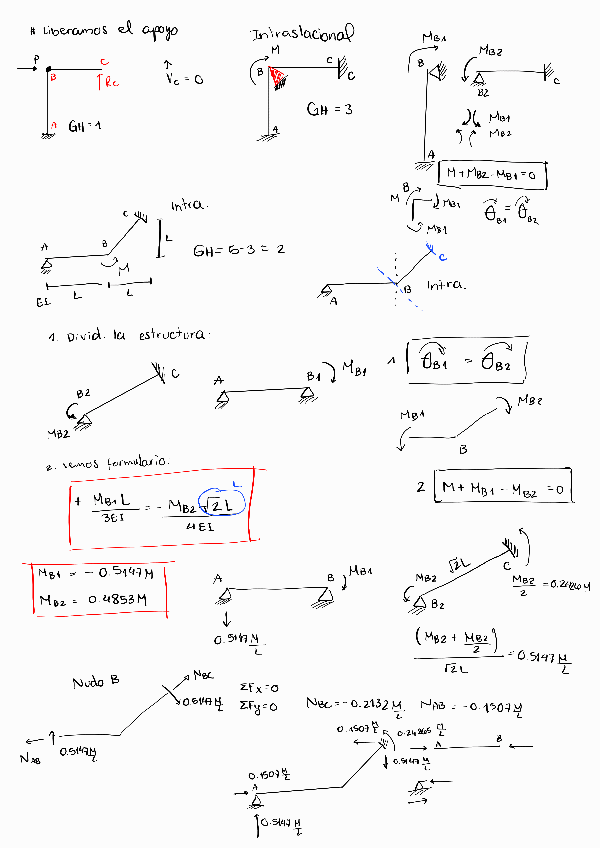 # Liberamos el apoyo
P
B
C
Rc
Vc = 0
A
GH = 1
Intraslacional
M
B
C
A
GH = 3
MB1
B
A
MB2
B2
C
MB1
MB2
M + MB2 - MB1 = 0
B
M
MB1
MB1
θB1 = θB2
Intra.
C
A
B
M
L
EI
L
L
GH = 5-3 = 2
A
B
C
Intra.
1. Divid. la estructura.
B2
C
MB2
A
B1
MB1
1
θB1 = θB2
MB1
MB2
B
2. vemos formulario.
+ MB1 L / 3EI = - MB2 √2 L / 4EI
L
2
M + MB1 - MB2 = 0
MB1 = - 0.5147M
MB2 = 0.4853M
A
B
MB1
0.5147 M/L
√2L
C
MB2
B2
MB2/2 = 0.2426M
(MB2 + MB2/2) / √2L = 0.5147 M/L
Nudo B
NBC
0.5147 M/L
ΣFx = 0
ΣFy = 0
NAB
0.5147 M/L
NBC = -0.2132 M/L NAB = -0.1507 M/L
0.1507 M/L
A
B
0.5147 M/L
0.1507 M/L
A
0.5147 M/L